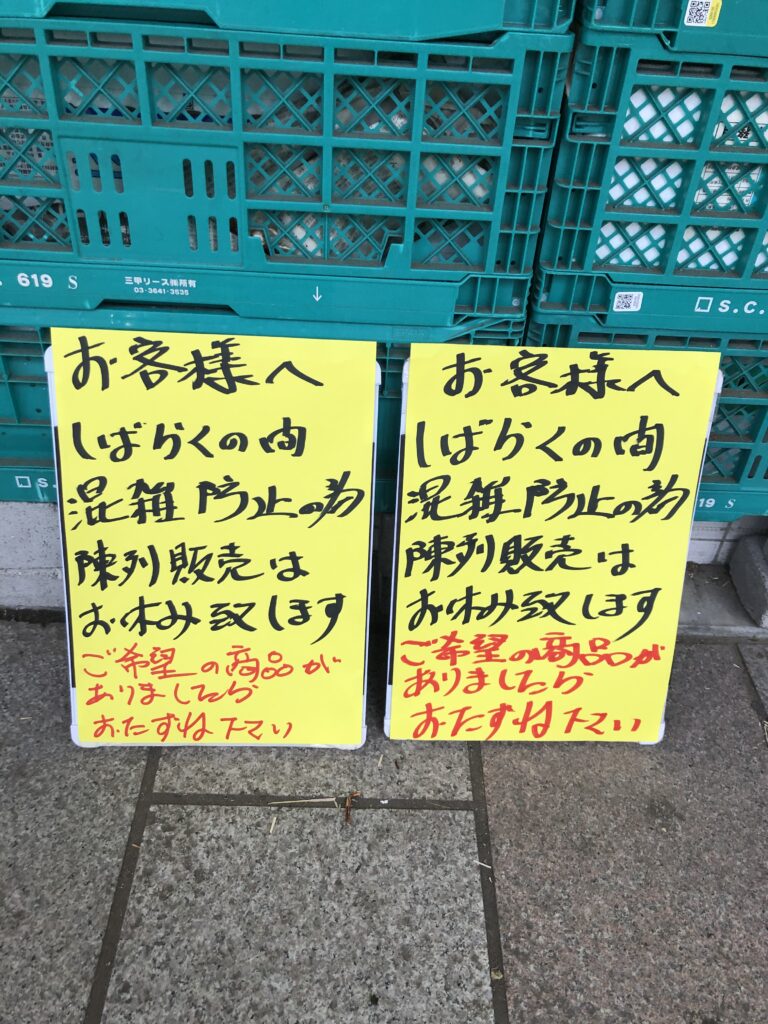 619 S
三甲リース㈱所有
03-3641-3535
S.C.
お客様へ
しばらくの間
混雑防止の為
陳列販売は
お休み致します
ご希望の商品が
ありましたら
おたずね下さい
お客様へ
しばらくの間
混雑防止の為
陳列販売は
お休み致します
ご希望の商品が
ありましたら
おたずね下さい
S.C.
619 S